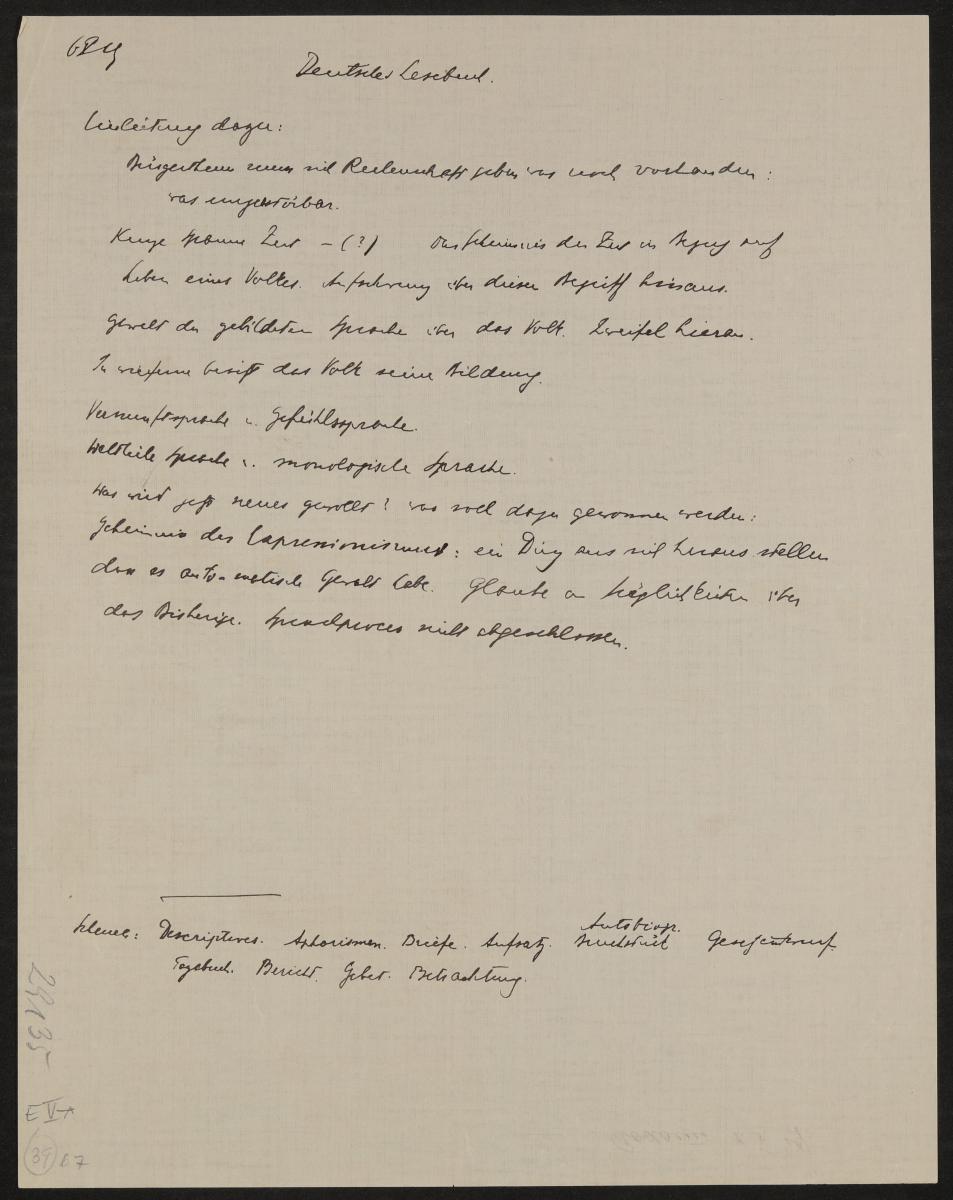 Deutsches Lesebuch.
Einleitung dazu:
Bürgerthum muss sich Rechenschaft geben was noch vorhanden:
was unzerstörbar.
Kurze Spanne Zeit – (?) Das Geheimnis der Zeit in Bezug auf
Leben eines Volkes. Aufschwung über diesen Begriff hinaus.
Gewalt der gebildeten Sprache über das Volk. Zweifel hieran.
In wieferne besitzt das Volk seine Bildung.
Vernunftsprache u. Gefühlssprache.
Sprache u. monologische Sprache.
Was wird jetzt neues gewollt? was soll dazu gewonnen werden:
Geheimnis des Expressionismus: ein Ding aus sich heraus stellen
dass es automatisch Gewalt habe. Glaube an Möglichkeiten über
das Bisherige. Sprachprocess nicht abgeschlossen.
Descriptives. Aphorismen. Briefe. Aufsatz. Autobiogr. Gesetzentwurf.
Tagebuch. Bericht. Gebet. Betrachtung.
29135
E V A
39 67